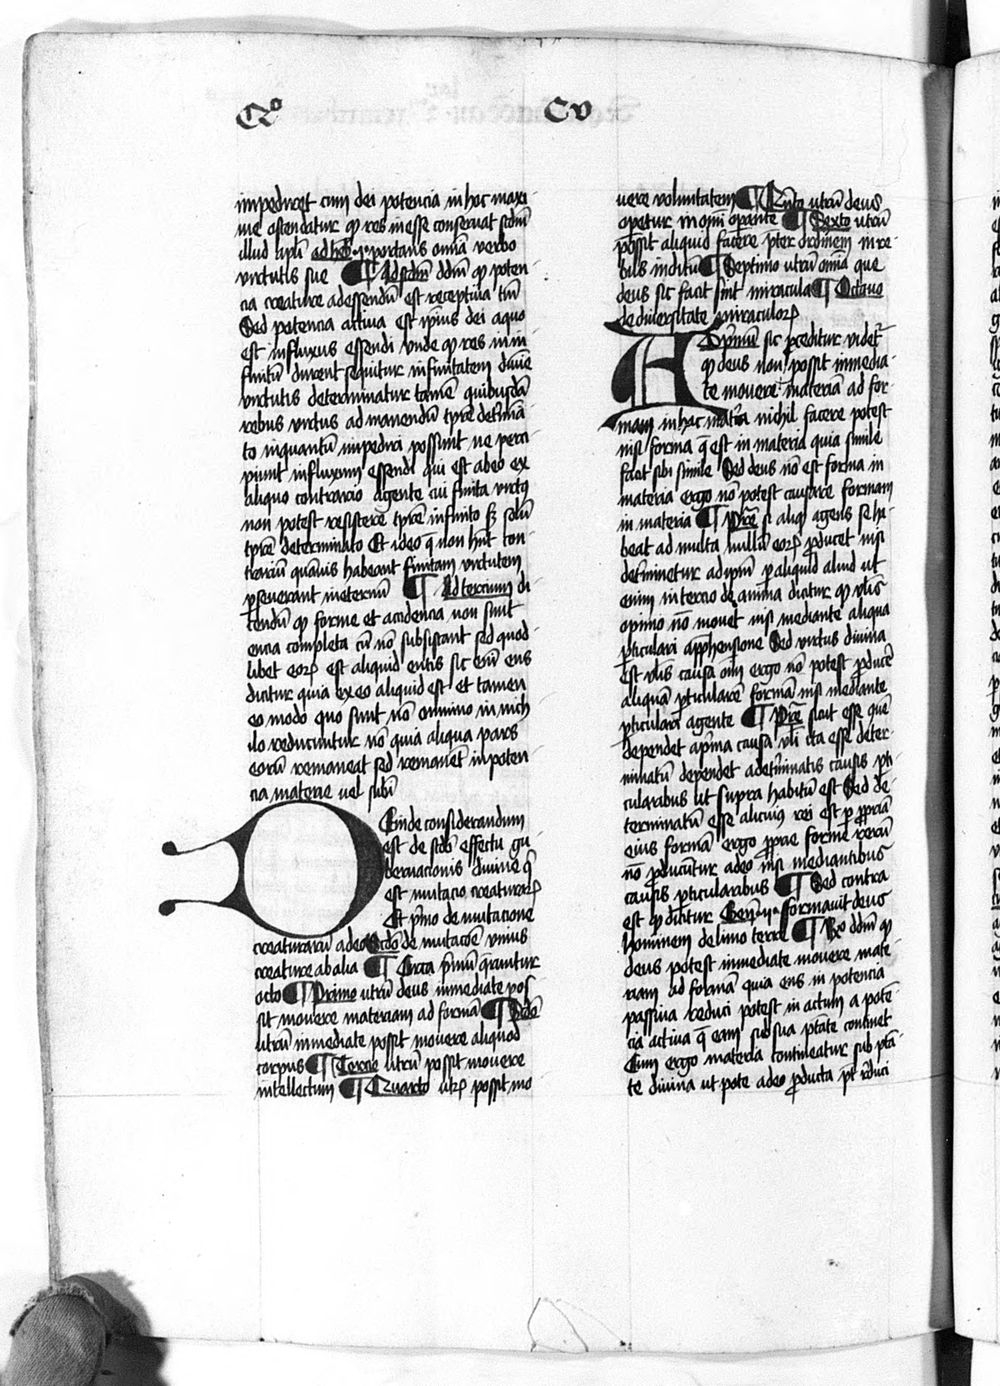 Qo CV
impediret cum dei potencia in hoc maxi-
me ostendatur qƺ res in esse conseruat scdm̄
illud apl̄i ad heb. p̄. portans om̄ia verbo
virtutis sue ¶ Ad scdm̄ dd̄m qƺ poten-
cia creature ad essendū est receptiua tm̄
Sed potencia actiua est ip̄ius dei a quo
est influxus essendi vnde qƺ res in in
finitū durent sequitur infinitatem diuīe
virtutis determinatur tamē quibusdā
rebus virtus ad manendū tp̄re det̄mīa-
to inquantū impediri possūnt ne perci
piunt influxum essendi qui est ab eo ex
aliquo contrario agente cui finita virtꝰ
non potest resistere tp̄re infinito sƺ solū
tp̄re determinato Et ideo q̄ non hn̄t con-
trariū quāuis habeant finitam virtutem
ꝑseuerant in eternū ¶ Ad tercium di
cendū qƺ forme et accidencia non sunt
encia completa cū nō subsistant sed quod
libet eorꝝ est aliquid entis sic enī ens
dicitur quia ex eo aliquid est et tamen
eo modo quo sunt nō omnino in nich
ilo reducuntur nō quia aliqua pars
eorū remaneat sed remanēt in poten
cia materie vel subī
Deinde considerandum
est de scd̄o effectu gu
bernacionis diuine q̄
est mutacio creaturarꝝ
Et p̄mo de mutacione
creaturarū a deo Scdo de mutacōe vnius
creature ab alia ¶ Circa p̄mū q̄runtur
octo ¶ Primo utrū deus inmediate pos
sit mouere materiam ad formā ¶ Scdo
utrū inmediate possit mouere aliquod
corpus ¶ Tercio utrū possit mouere
intellectum ¶ Quarto utrꝝ possit mo
uere voluntatem ¶ Quīto utrū deus
operetur in omī operante ¶ Sexto utrū
possit aliquid facere p̄ter ordinem in re-
bus inditū ¶ Septimo utrū om̄ia que
deus sic facit sint miracula ¶ Octauo
de diuersitate miraculorꝝ
Ad p̄mū sic ꝓceditur videt̄
qƺ deus non possit inmedia-
te mouere materiā ad for-
mam in hac mat̄ia nichil facere potest
nisi forma q̄ est in materia quia simile
facit sibi simile Sed deus nō est forma in
materia ergo nō potest causare formam
in materia ¶ Pret̄ si aliqƺ agens se hā
beat ad multa nullū eorꝝ ꝓducet nisi
det̄minetur ad ip̄m ꝑ aliquid aliud ut
enim in tercio de anima dicitur qƺ vl̄is
opinio nō mouet nisi mediante aliqua
ꝑticulari app̄hensione Sed virtus diuina
est vl̄is causa om̄ ergo nō potest ꝓducē
aliquā ꝑticularē formā nisi mediante
ꝑticulari agente ¶ Pret̄ sicut esse quē
dependet a p̄ma causa vl̄i ita esse deter-
minatū dependet a det̄minatis causis ꝑti
cularibus ut supra habitū est Sed de-
terminatū esse alicuius rei est ꝑ ꝓpriā
eius formā ergo ꝓprie forme rerū
nō ꝓducūtur a deo nisi mediantibus
causis ꝑticularibus ¶ Sed contra
est qƺ dicitur Gen̄. ij. formauit deus
hominem de limo terre ¶ Rō dd̄m qƺ
deus potest inmediate mouere mate
riam ad formā quia ens in potencia
passiua reduci potest in actum a potē-
cia actiua q̄ eam sub sua p̄tate continet
Cum ergo materia contineatur sub p̄tā-
te diuina ut pote a deo ꝓducta pt̄ reduci